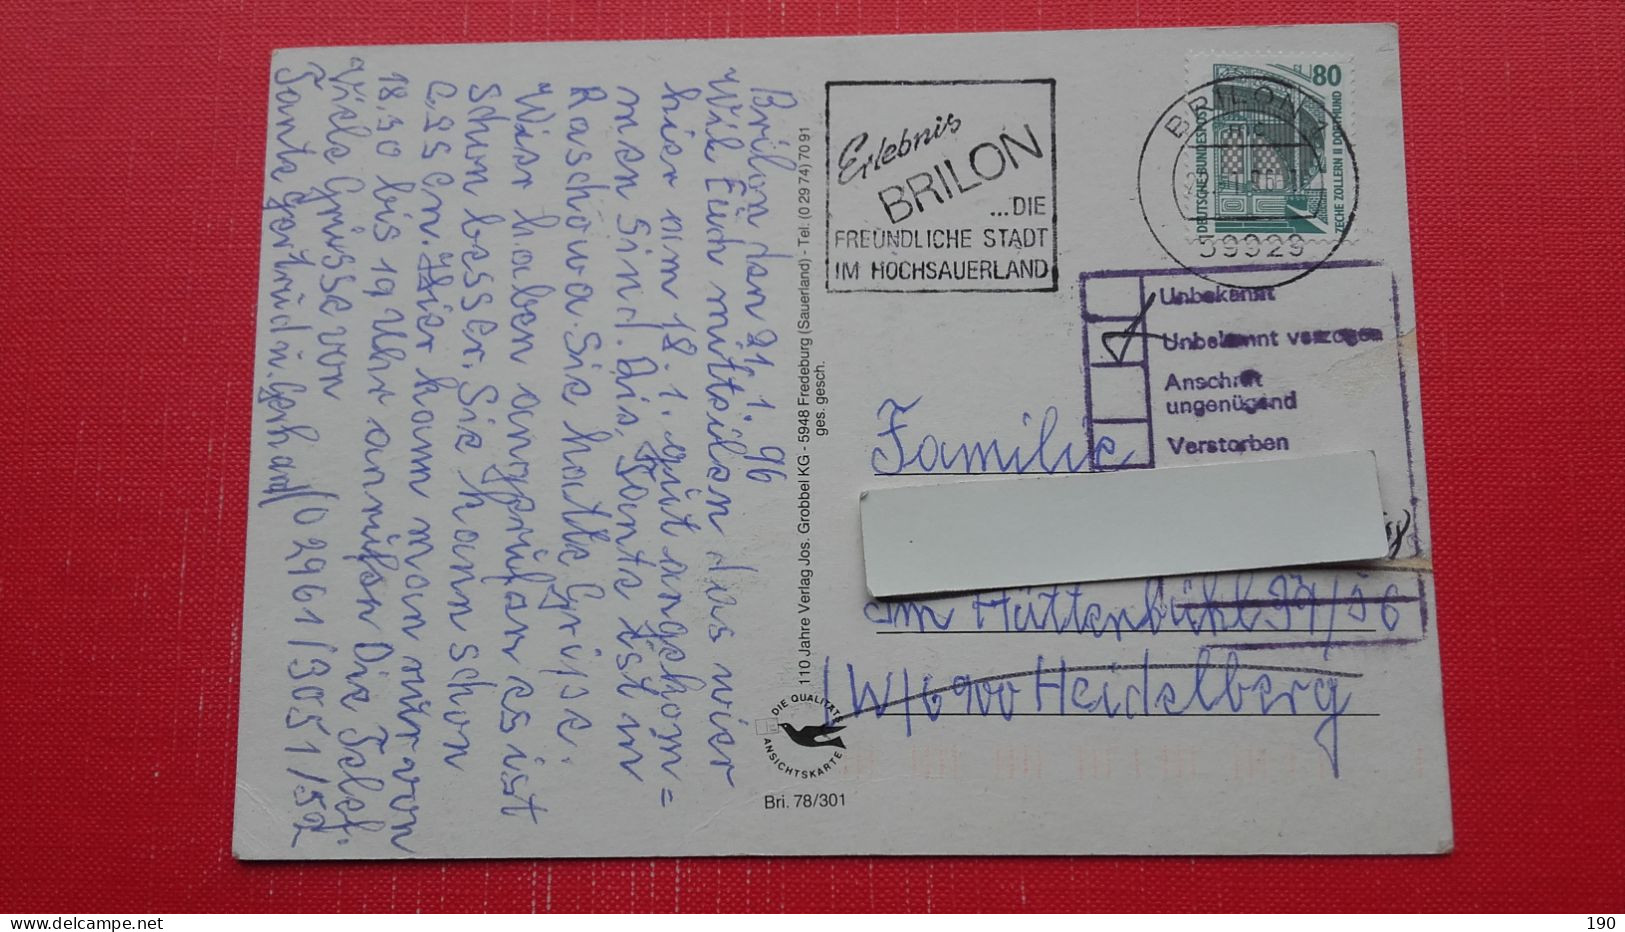 Brilon den 21. 1. 96
Will Euch mitteilen das wier
hier am 18. 1. gut angekom=
men sind. Bis, Tante ist in
Raschowa. Sie hatte Grippe.
Wier haben angerufen es ist
schon besser. Sie kann schon
essen. Hier kann man nur von
18.30 bis 19 Uhr anrufen Die Telef.
Viele Grüsse von
Tante Gertrud u. Gerhard /02961/3051/52
110 Jahre Verlag Jos. Grobbel KG - 5948 Fredeburg (Sauerland) - Tel. (0 29 74) 70 91
ges. gesch.
DIE QUALITÄTS
ANSICHTSKARTE
Bri. 78/301
Erlebnis
BRILON
...DIE
FREUNDLICHE STADT
IM HOCHSAUERLAND
BRILON 1
59929
80
DEUTSCHE BUNDESPOST
ZECHE ZOLLERN II DORTMUND
Unbekannt
Unbekannt verzogen
Anschrift
ungenügend
Verstorben
Familie
am Hüttenbühl 37/56
/W/6900 Heidelberg
190